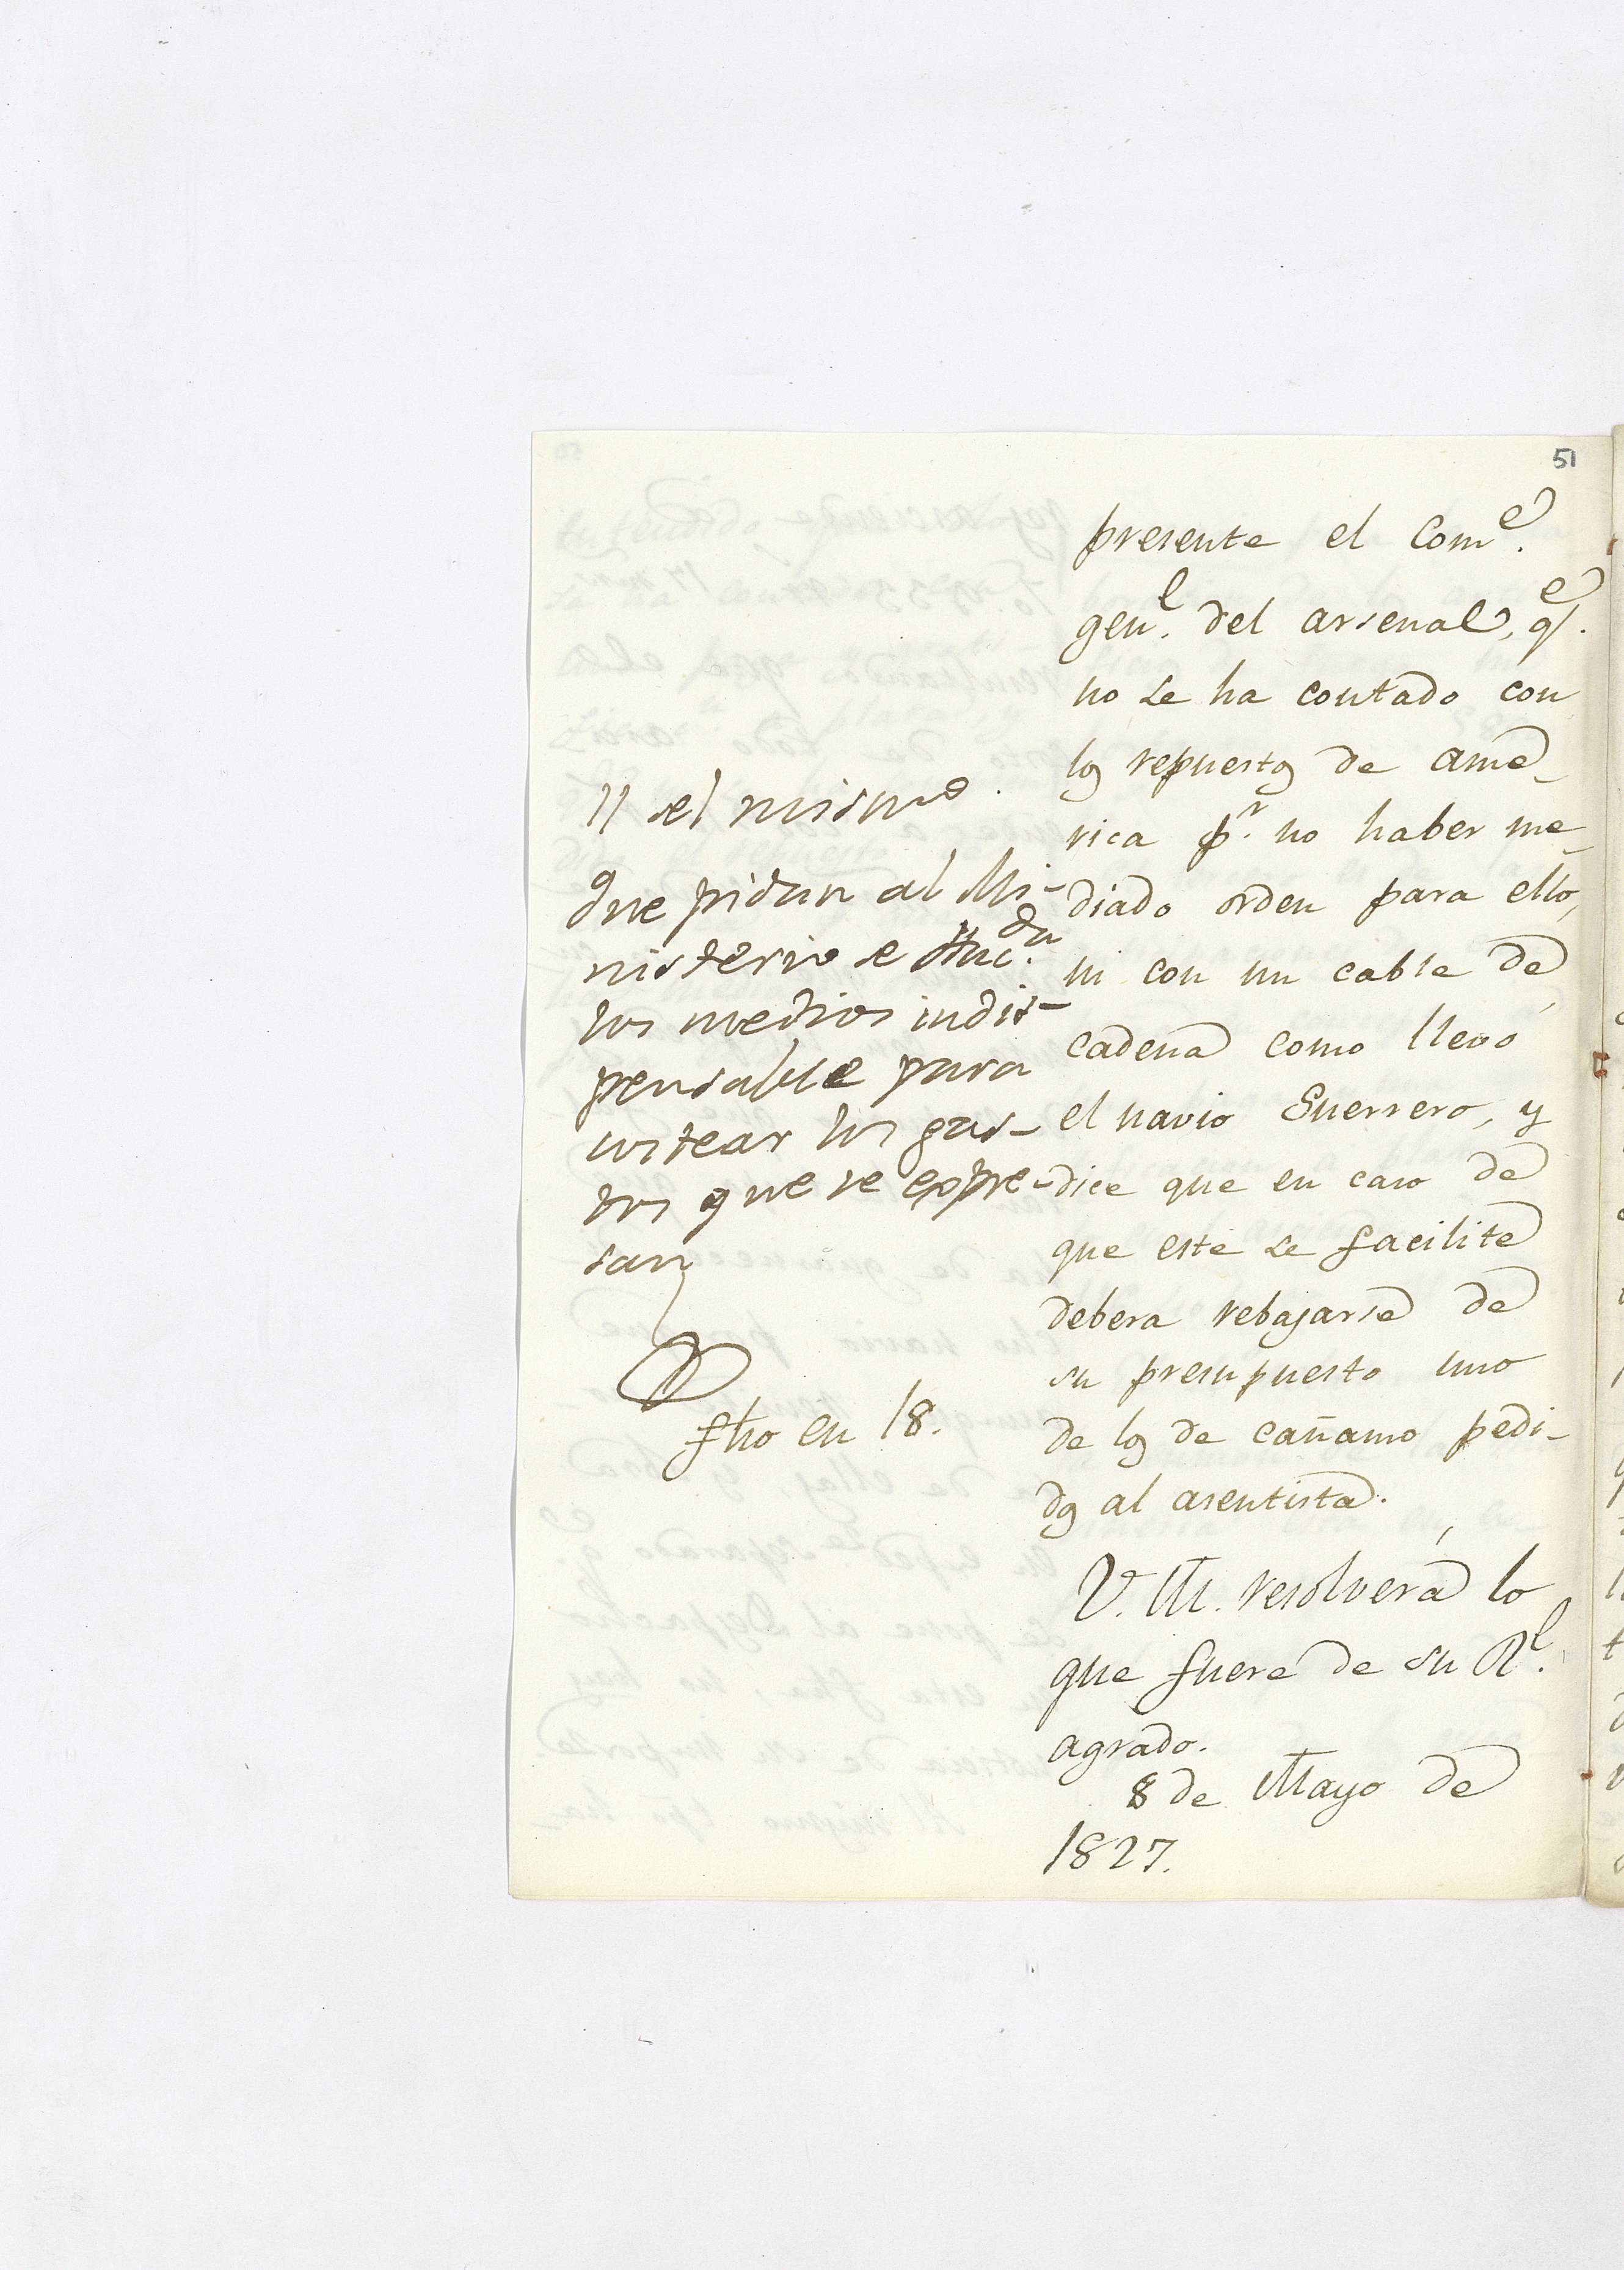 51
presente el Com.e
gen.l del arsenal, q.e
no se ha contado con
los repuestos de ame-
rica p.r no haber me-
diado orden para ello,
ni con un cable de
cadena como llevó
el navio Guerrero, y
dice que en caso de
que este se facilite
debera rebajarse de
su presupuesto uno
de los de cañamo pedi-
dos al asentista.
V. M. resolverá lo
que fuere de su R.l
agrado.
8 de Mayo de
1827.
11 del mismo.
Que pidan al Mi-
nisterio de Hac.da
los medios indis-
pensable para
costear los gas-
tos que se expre-
san
fho en 18.